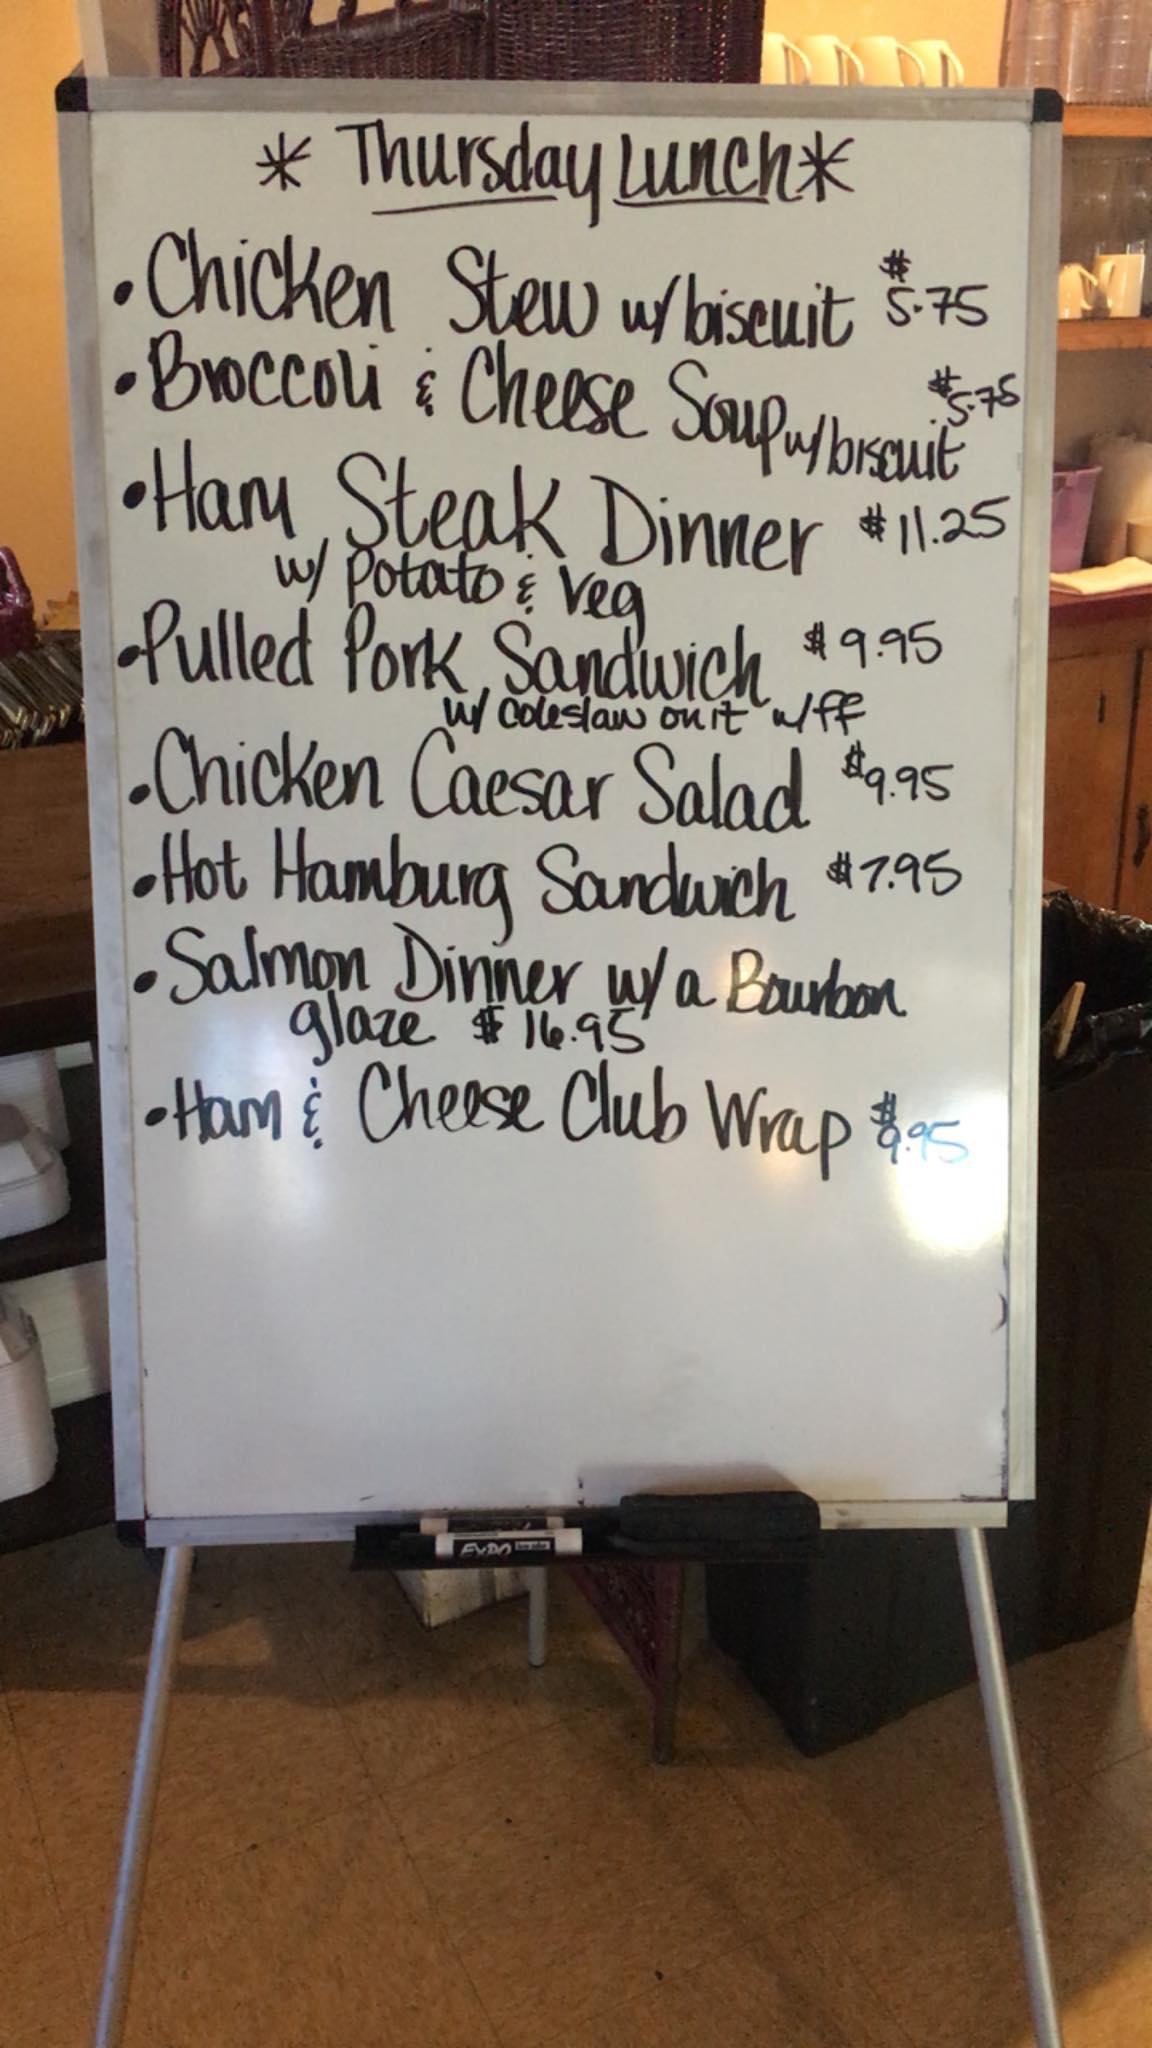 * Thursday Lunch *
• Chicken Stew w/biscuit $5.75
• Broccoli & Cheese Soup w/biscuit $5.75
• Ham Steak Dinner $11.25
w/ Potato & Veg
• Pulled Pork Sandwich $9.95
w/ coleslaw on it w/ff
• Chicken Caesar Salad $9.95
• Hot Hamburg Sandwich $7.95
• Salmon Dinner w/a Bourbon
glaze $16.95
• Ham & Cheese Club Wrap $9.95
EXPO